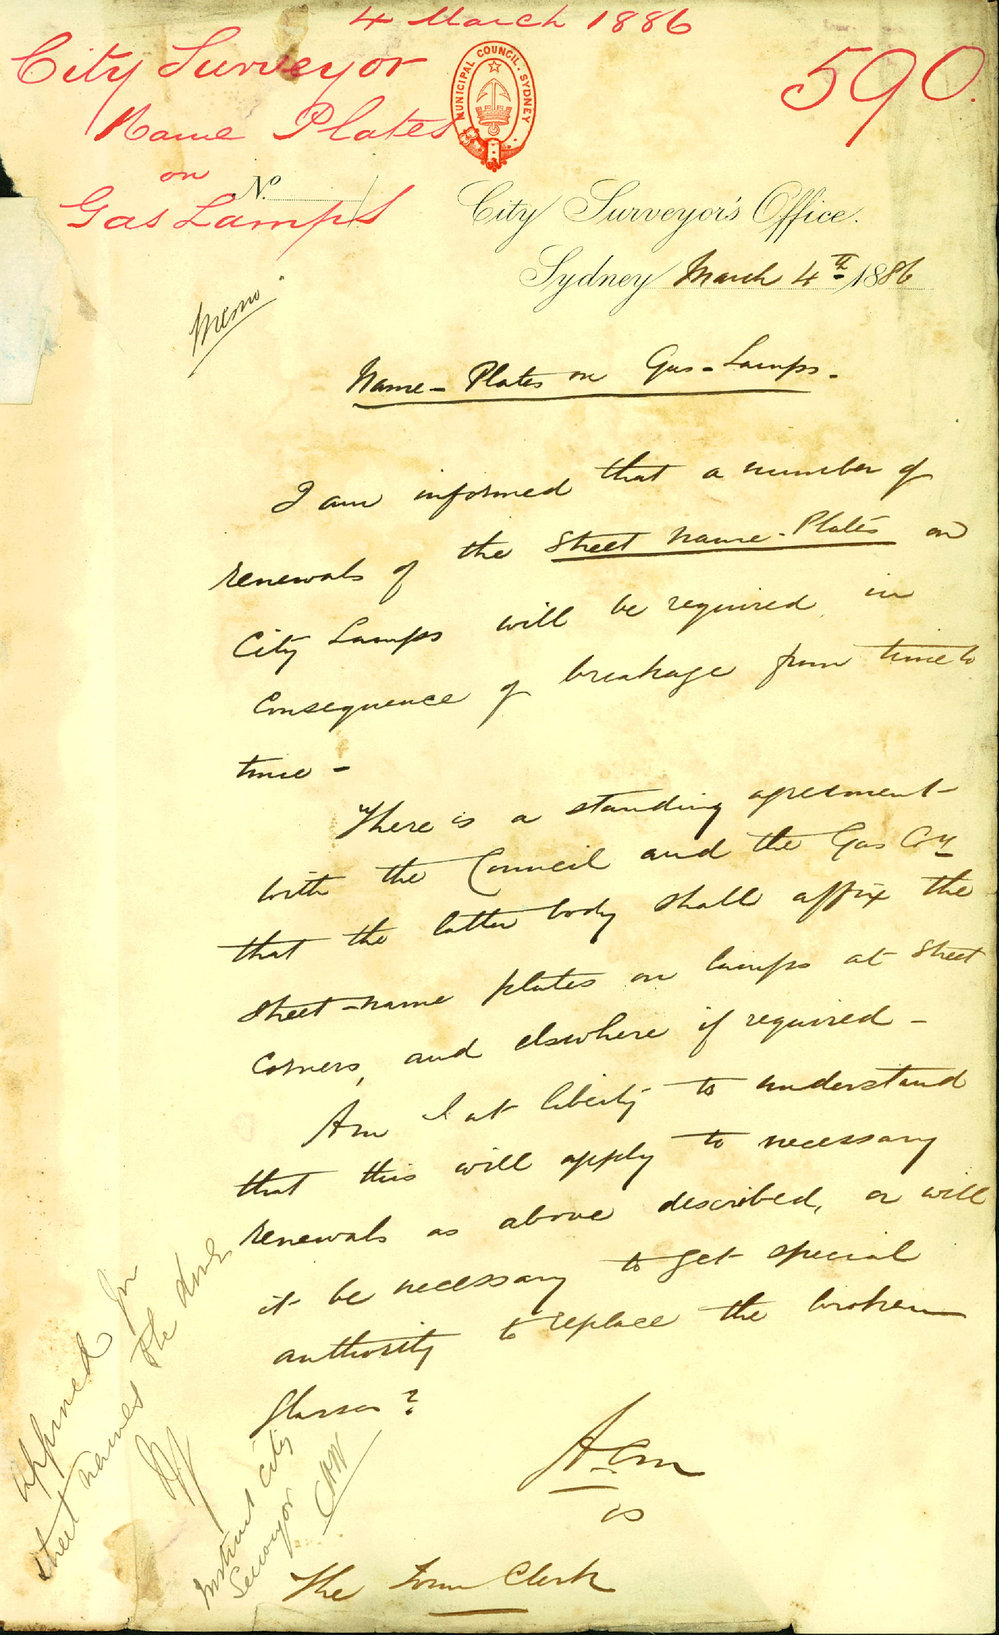 4 March 1886
City Surveyor
Name Plates
on
Gas Lamps
590.
MUNICIPAL COUNCIL. SYDNEY
No
City Surveyor's Office.
Sydney March 4th 1886
Memo
Name-Plates on Gas-Lamps.
I am informed that a number of
renewals of the Street Name-Plates on
City Lamps will be required in
consequence of breakage from time to
time -
There is a standing agreement
with the Council and the Gas Coy
that the latter body shall affix the
street-name plates on lamps at street
corners, and elsewhere if required -
Am I at liberty to understand
that this will apply to necessary
renewals as above described, or will
it be necessary to get special
authority to replace the broken
glasses?
The Town Clerk
street names
Instruct City
Surveyor